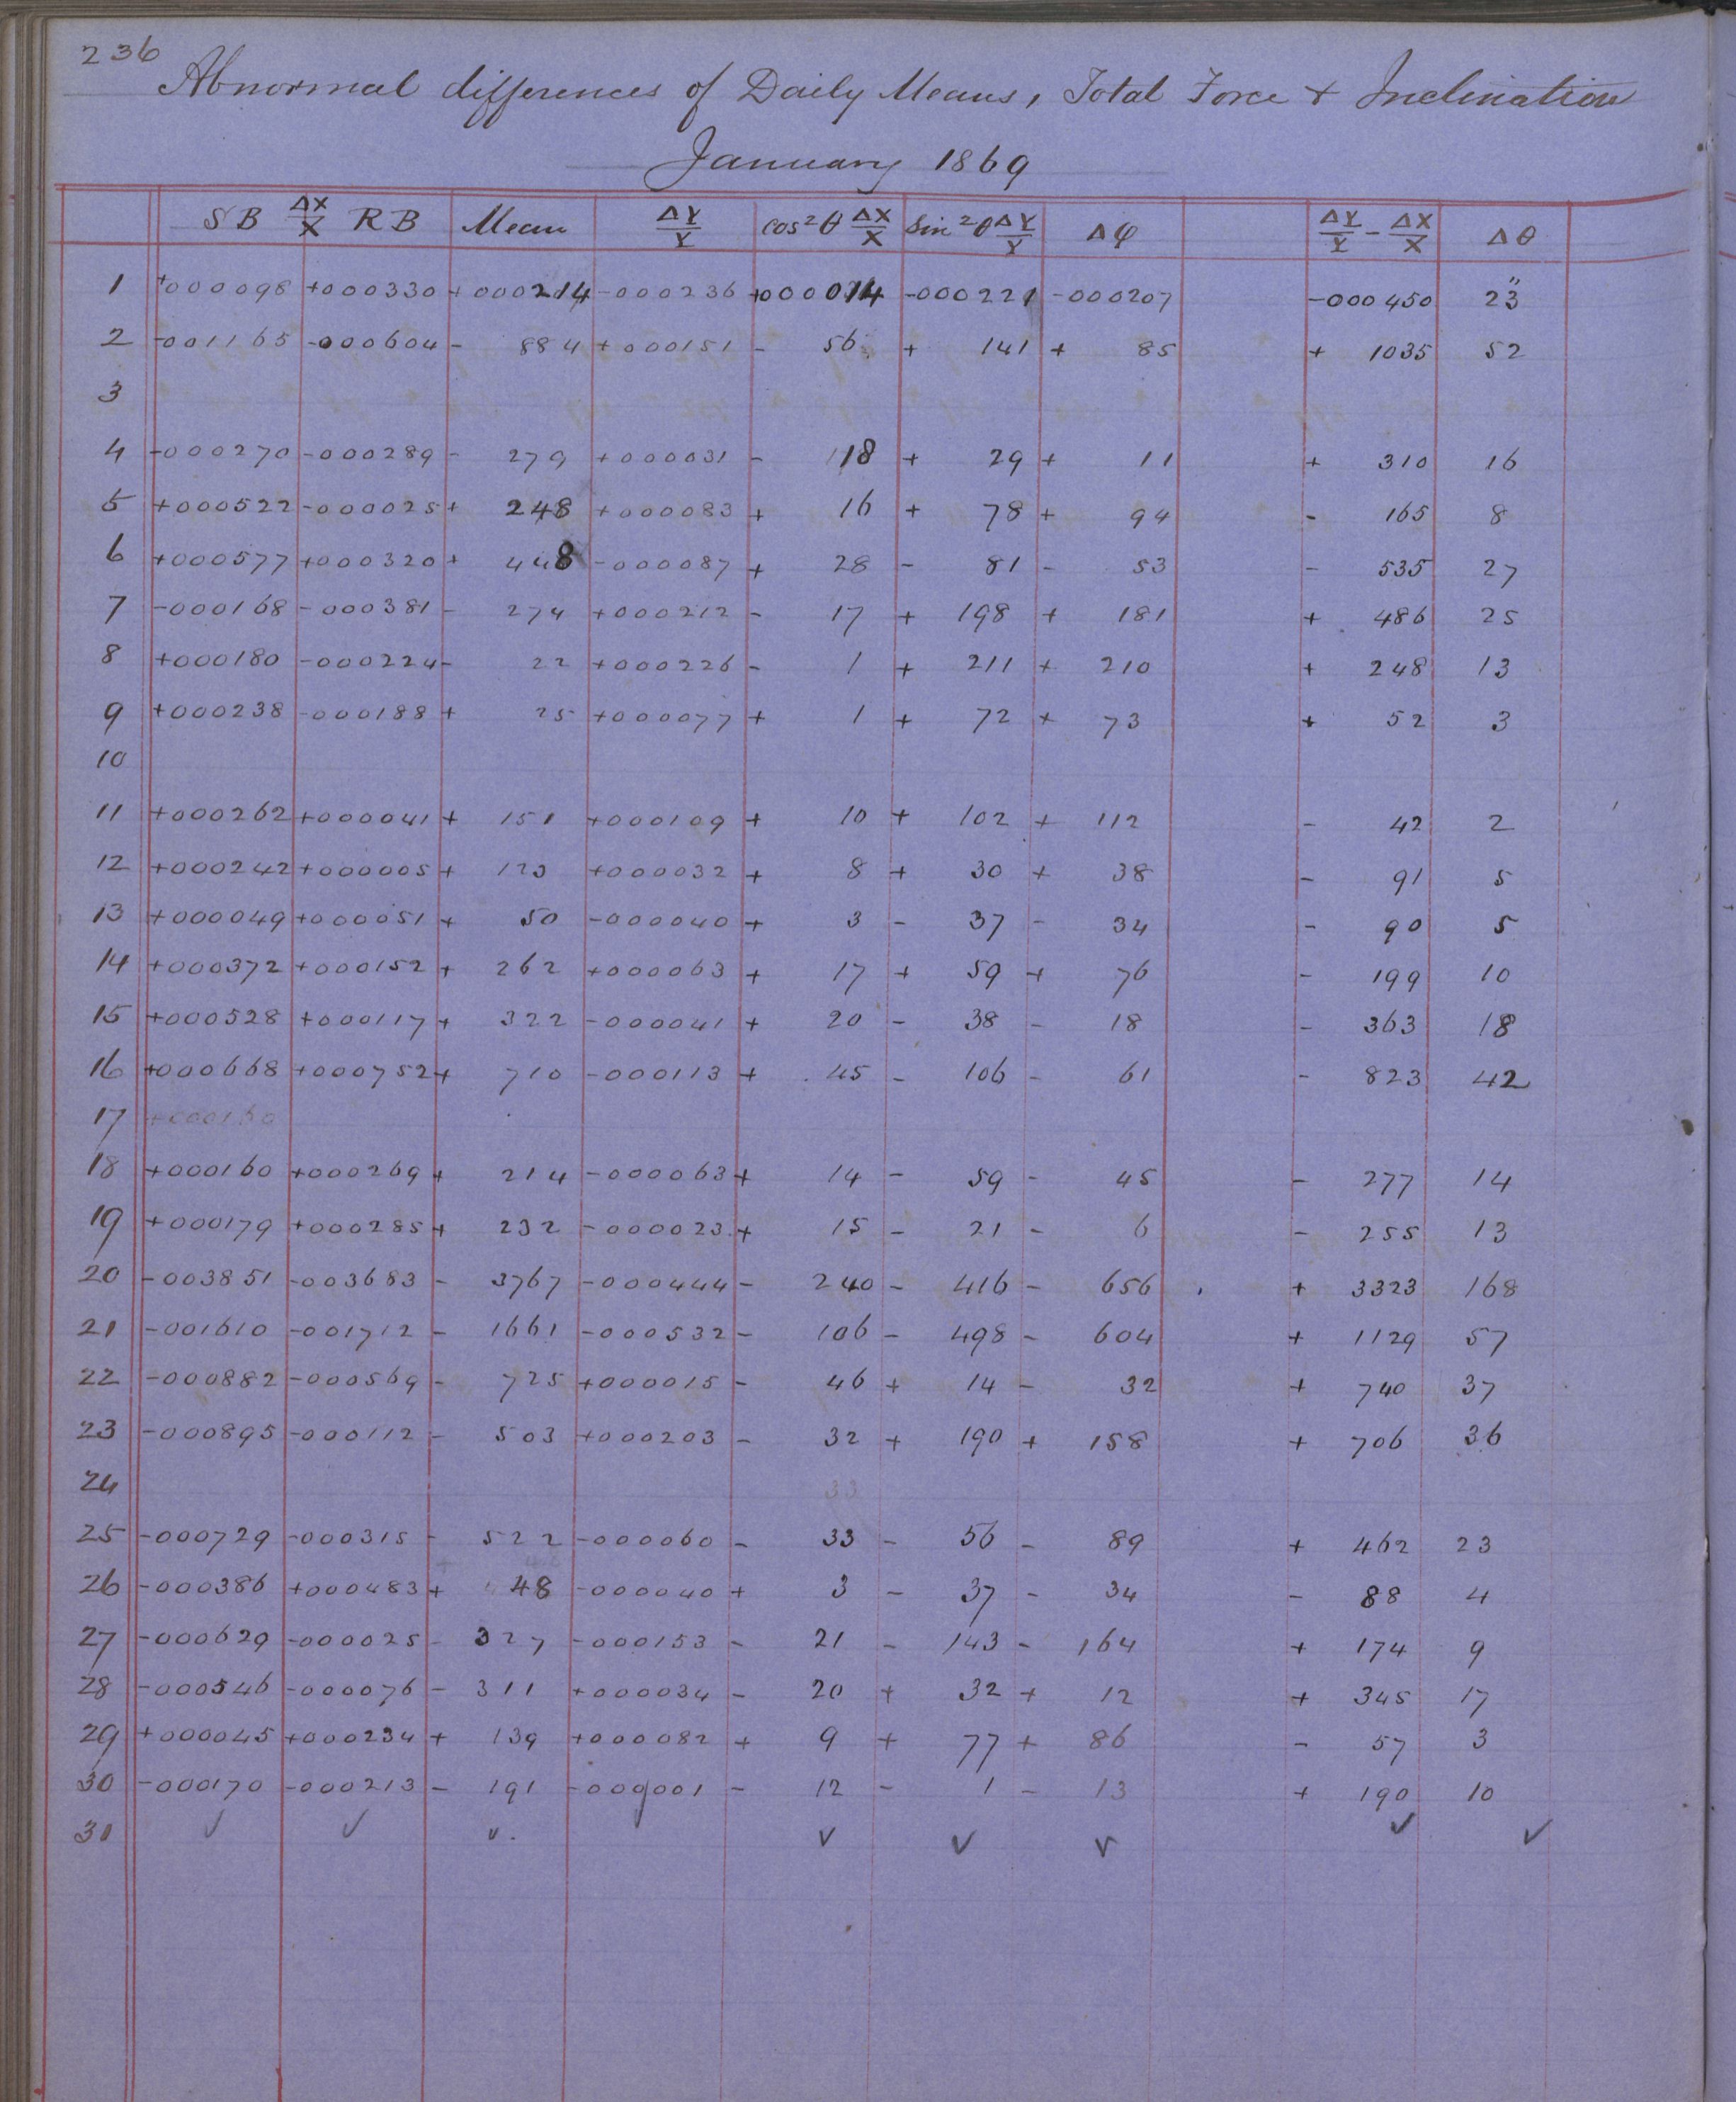 236
Abnormal differences of Daily Means, Total Force + Inclination
January 1869
SB ΔX/X RB Mean ΔY/Y cos²θ ΔX/X Sin²θ ΔY/Y Δφ ΔY/Y - ΔX/X Δθ
1 +000098 +000330 +000214 -000236 +000014 -000221 -000207 -000450 23"
2 -001165 -000604 - 884 +000151 - 56 + 141 + 85 + 1035 52
3
4 -000270 -000289 - 279 +000031 - 18 + 29 + 11 + 310 16
5 +000522 -000025 + 248 +000083 + 16 + 78 + 94 - 165 8
6 +000577 +000320 + 448 -000087 + 28 - 81 - 53 - 535 27
7 -000168 -000381 - 274 +000212 - 17 + 198 + 181 + 486 25
8 +000180 -000224 - 22 +000226 - 1 + 211 + 210 + 248 13
9 +000238 -000188 + 25 +000077 + 1 + 72 + 73 + 52 3
10
11 +000262 +000041 + 151 +000109 + 10 + 102 + 112 - 42 2
12 +000242 +000005 + 123 +000032 + 8 + 30 + 38 - 91 5
13 +000049 +000051 + 50 -000040 + 3 - 37 - 34 - 90 5
14 +000372 +000152 + 262 +000063 + 17 + 59 + 76 - 199 10
15 +000528 +000117 + 322 -000041 + 20 - 38 - 18 - 363 18
16 +000668 +000752 + 710 -000113 + 45 - 106 - 61 - 823 42
17 +000160
18 +000160 +000269 + 214 -000063 + 14 - 59 - 45 - 277 14
19 +000179 +000285 + 232 -000023 + 15 - 21 - 6 - 255 13
20 -003851 -003683 - 3767 -000444 - 240 - 416 - 656 + 3323 168
21 -001610 -001712 - 1661 -000532 - 106 - 498 - 604 + 1129 57
22 -000882 -000569 - 725 +000015 - 46 + 14 - 32 + 740 37
23 -000895 -000112 - 503 +000203 - 32 + 190 + 158 + 706 36
24 33
25 -000729 -000315 - 522 -000060 - 33 - 56 - 89 + 462 23
26 -000386 +000483 + 48 -000040 + 3 - 37 - 34 - 88 4
27 -000629 -000025 - 327 -000153 - 21 - 143 - 164 + 174 9
28 -000546 -000076 - 311 +000034 - 20 + 32 + 12 + 345 17
29 +000045 +000234 + 139 +000082 + 9 + 77 + 86 - 57 3
30 -000170 -000213 - 191 -000001 - 12 - 1 - 13 + 190 10
31 ✓ ✓ ✓ ✓ ✓ ✓ ✓ ✓